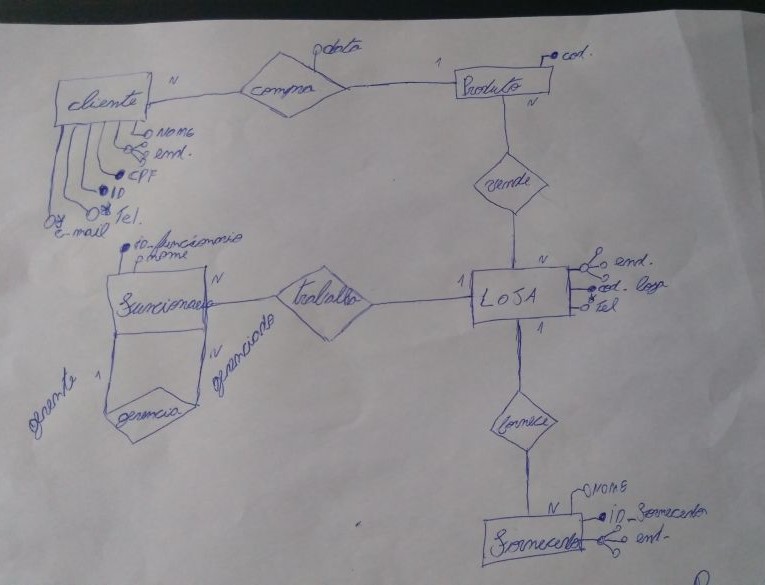 data
N
1
cod.
Cliente
compra
Produto
N
NOME
end.
CPF
ID
* Tel.
* e-mail
vende
ID_funcionario
nome
N
end.
N
1
Funcionario
trabalha
LOJA
cod. loja
* Tel
1
gerente
1
N
gerenciado
gerencia
fornece
NOME
N
ID_fornecedor
Fornecedor
end.